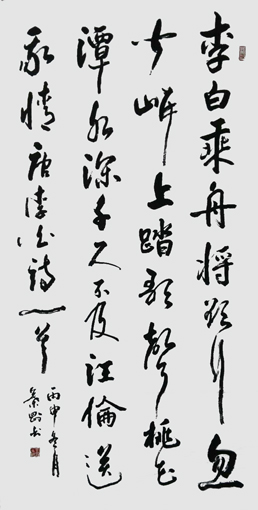 李白乘舟將欲行忽
聞岸上踏歌聲桃花
潭水深千尺不及汪倫送
我情唐李白詩一首
丙申冬月